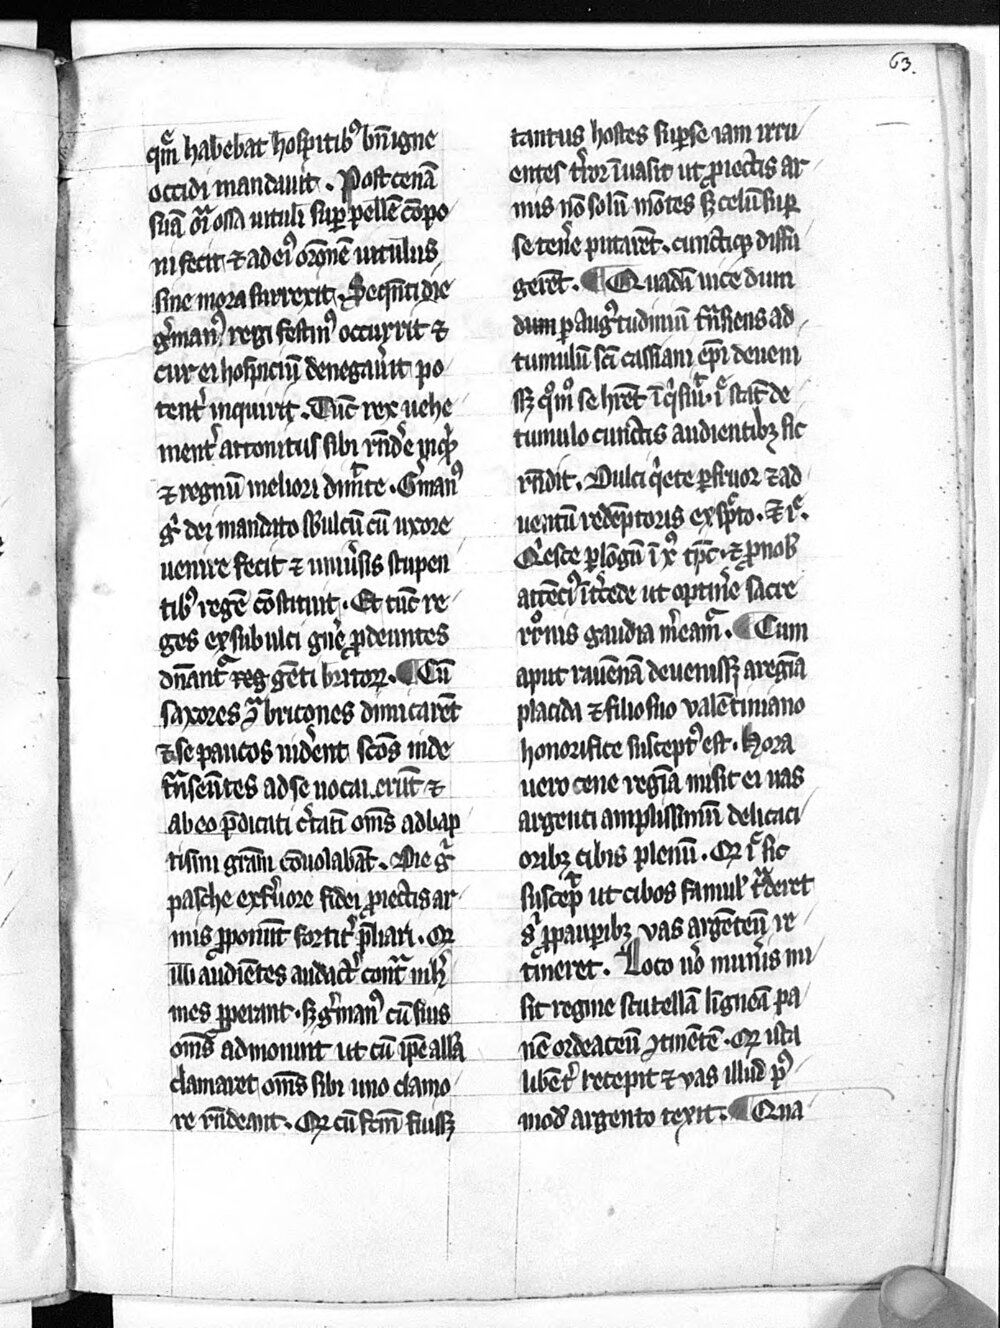 63.
quē habebat hospitibꝰ bn̄igne
occidi mandauit. Post cenā
suā oīa ossa uituli suꝑ pellē cōpo
ni fecit ⁊ ad eiꝰ orōnē uitulus
sine mora surrexit. Sequēti die
gͥmanꝰ regi festinꝰ occurrit ⁊
cur ei hospiciū denegaūit po
tentͥ inquirit. Tūc rex uehe
mentͥ attonitus sibi rn̄dͤe neqͥuit
⁊ regnū meliori dimͥtte. Gͥmanꝰ
gͦ dei mandato sbulcū cū uxore
uenire fecit ⁊ uniuͥsis stupen
tibꝰ regē cōstituit. Et tūc re
ges ex subulci gnͤe ꝓdeuntes
dn̄antᷓ reg gēti britoꝝ. ¶ Cū
saxones ꝯᷓ britones dimicarēt
⁊ se paucos uidͤent scōs inde
tᷓnseūtes ad se uocauerūt ⁊
ab eo p̄dicati cͥtati om̄s ad bap
tismi gram̄ cōuolabāt. Die gͦ
pasche ex fͥuore fidei ꝓiectis ar
mis ꝓponūt fortitͥ p̄liari. Qꝫ
illi audiētes audactͥ contᷓ inhͥ
mes ꝓperant. sꝫ gͥmanꝰ cū suis
om̄s admonunt ut cū ip̄e alla
clamaret om̄s sibi uno clamo
re rn̄deant. Qꝫ cū fcm̄ fuissꝫ
tantus hostes suꝑ se iam irru
entes tͥror īuasit ut ꝓiectis ar
mis nō solū mōtes sꝫ celū suꝑ
se tenͤe putarēt. cunctiqꝫ diffu
gerēt. ¶ Quadā uice dum
dum ꝑ augͥtudinū tᷓnsiens ad
tumulū sc̄i cassiani ep̄i deueni
ssꝫ qͦmͦ se hr̄et īqͥsiuͥ. ī stat̄ de
tumulo cunctis audientibꝫ sic
rn̄dit. Dulci qͥete ꝑfruor ⁊ ad
uentū redēptoris expͨto. ⁊ iͤ.
Qͥesce ꝑ lōgū ī xͦ tp̄c. ⁊ ꝓ nob̄
attēciꝰ īt͛cede ut optinͤe sacre
rͦnis gaudia mͥeamᷓ. ¶ Cum
aput rauēnā deuenissꝫ a regīa
placida ⁊ filio suo valētiniano
honorifice susceptꝰ est. Hora
uero cene regīa misit ei uas
argenti amplissimū delicaci
oribꝫ cibis plenū. Qꝫ ī sic
suscepͥ ut cibos famulͥ tᷓderet
gͦ ꝓ pauꝑibꝫ vas argēteū re
tineret. Loco uͦo munͥis mi
sit regine scutellā ligneā pa
nē ordeaceū ꝯtinētē. Qꝫ ista
libētͥ recepit ⁊ vas illud pꝰ
mod̄ argento texit. ¶ Qua